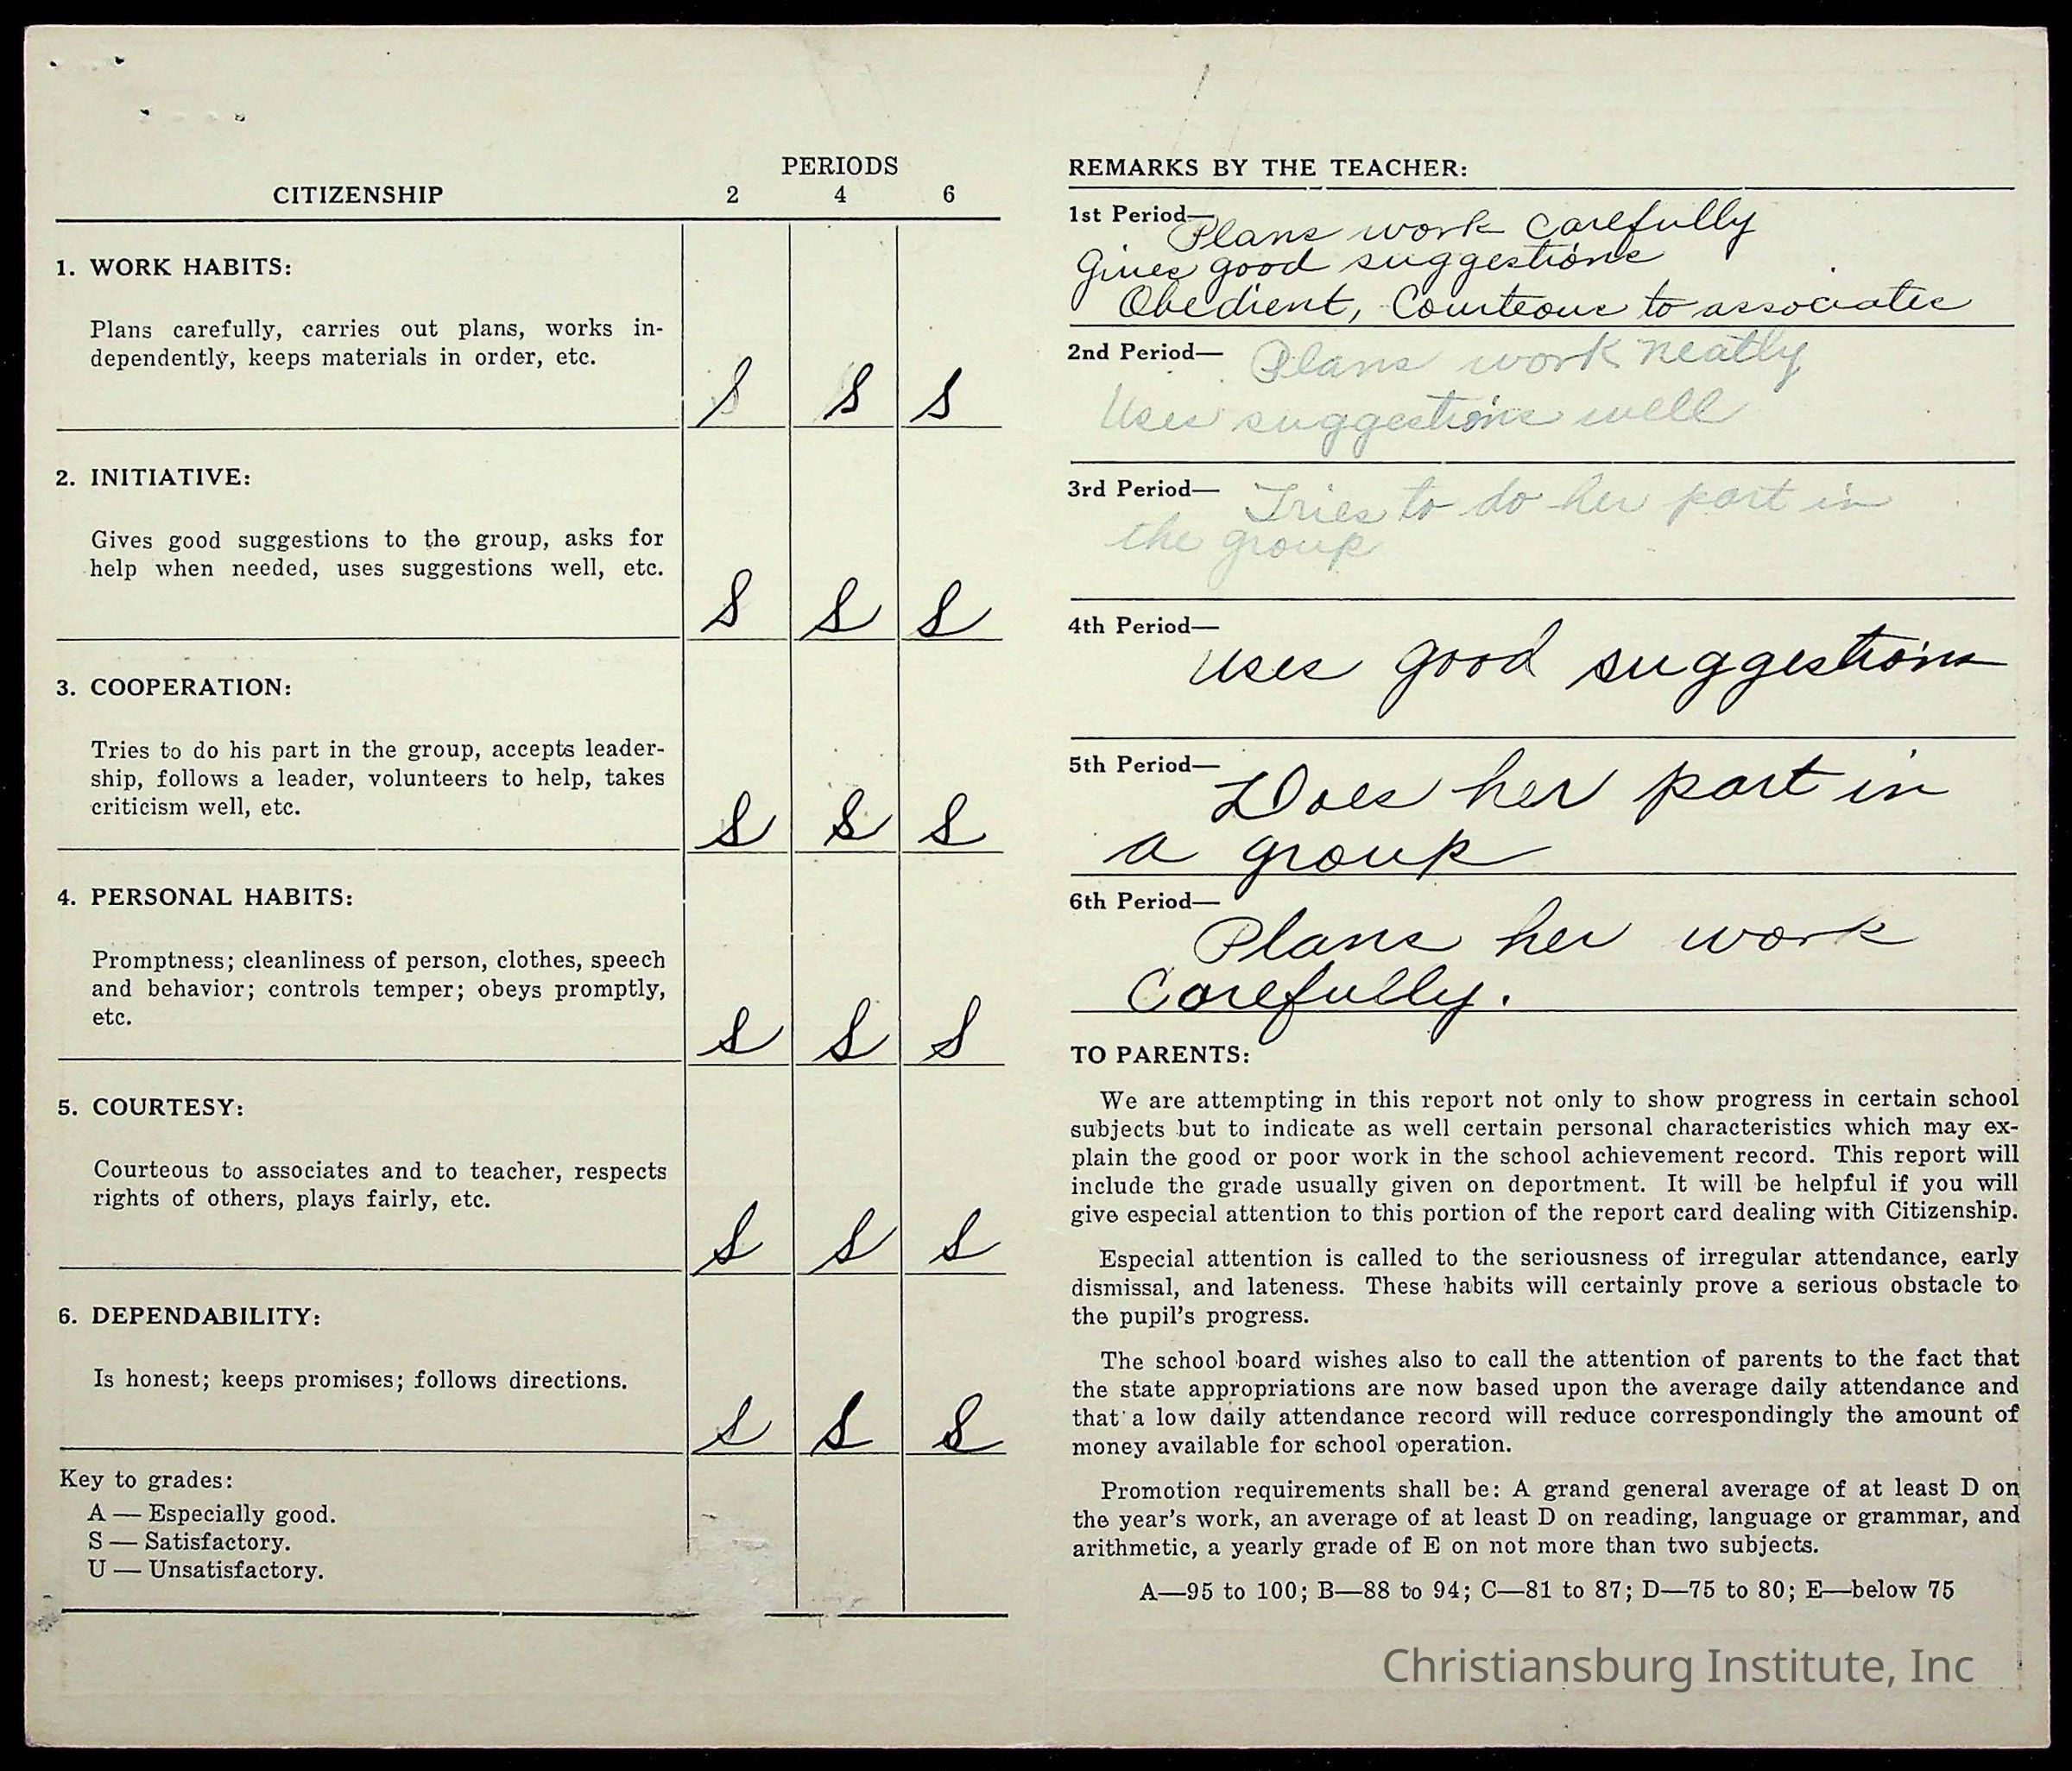 CITIZENSHIP
PERIODS
2 4 6
1. WORK HABITS:
Plans carefully, carries out plans, works in-
dependently, keeps materials in order, etc.
S S S
2. INITIATIVE:
Gives good suggestions to the group, asks for
help when needed, uses suggestions well, etc.
S S S
3. COOPERATION:
Tries to do his part in the group, accepts leader-
ship, follows a leader, volunteers to help, takes
criticism well, etc.
S S S
4. PERSONAL HABITS:
Promptness; cleanliness of person, clothes, speech
and behavior; controls temper; obeys promptly,
etc.
S S S
5. COURTESY:
Courteous to associates and to teacher, respects
rights of others, plays fairly, etc.
S S S
6. DEPENDABILITY:
Is honest; keeps promises; follows directions.
S S S
Key to grades:
A — Especially good.
S — Satisfactory.
U — Unsatisfactory.
REMARKS BY THE TEACHER:
1st Period— Plans work carefully
Gives good suggestions
Obedient, Courteous to associates
2nd Period— Plans work neatly
Uses suggestions well
3rd Period— Tries to do her part in
the group
4th Period—
uses good suggestions
5th Period— Does her part in
a group
6th Period—
Plans her work
Carefully.
TO PARENTS:
We are attempting in this report not only to show progress in certain school
subjects but to indicate as well certain personal characteristics which may ex-
plain the good or poor work in the school achievement record. This report will
include the grade usually given on deportment. It will be helpful if you will
give especial attention to this portion of the report card dealing with Citizenship.
Especial attention is called to the seriousness of irregular attendance, early
dismissal, and lateness. These habits will certainly prove a serious obstacle to
the pupil's progress.
The school board wishes also to call the attention of parents to the fact that
the state appropriations are now based upon the average daily attendance and
that a low daily attendance record will reduce correspondingly the amount of
money available for school operation.
Promotion requirements shall be: A grand general average of at least D on
the year's work, an average of at least D on reading, language or grammar, and
arithmetic, a yearly grade of E on not more than two subjects.
A—95 to 100; B—88 to 94; C—81 to 87; D—75 to 80; E—below 75
Christiansburg Institute, Inc